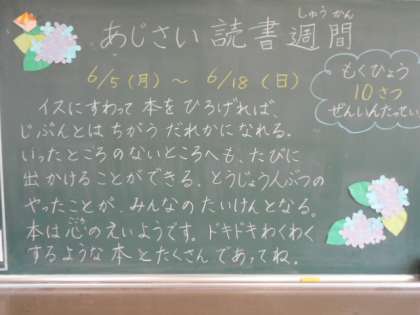 あじさい読書週間
しゅうかん
6/5(月)～ 6/18(日)
もくひょう
10さつ
ぜんいんたっせい
イスにすわって本をひろげれば、
じぶんとはちがうだれかになれる。
いったところのないところへも、たびに
出かけることができる。とうじょうじんぶつの
やったことが、みんなのたいけんとなる。
本は心のえいようです。ドキドキわくわく
するような本とたくさんであってね。